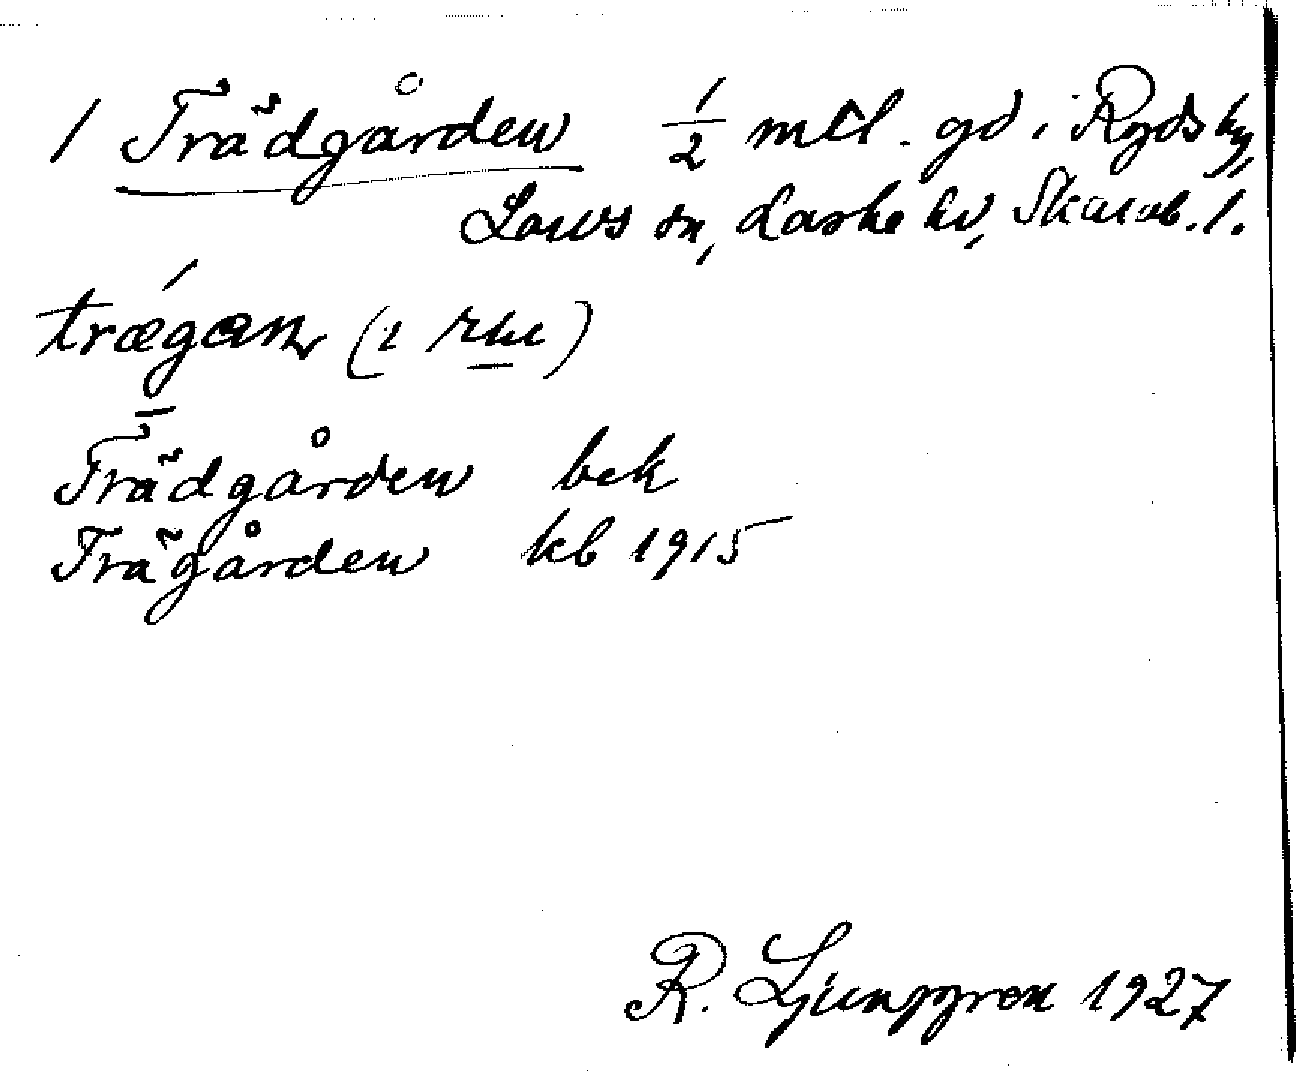 1 Trädgården 1/2 mtl. gd i Ryds by,
Lavads sn, Laske hd, Skarab. l.
trǽgan (i Rha)
Trädgården bek
Trägården kb 1915
R. Ljunggren 1927